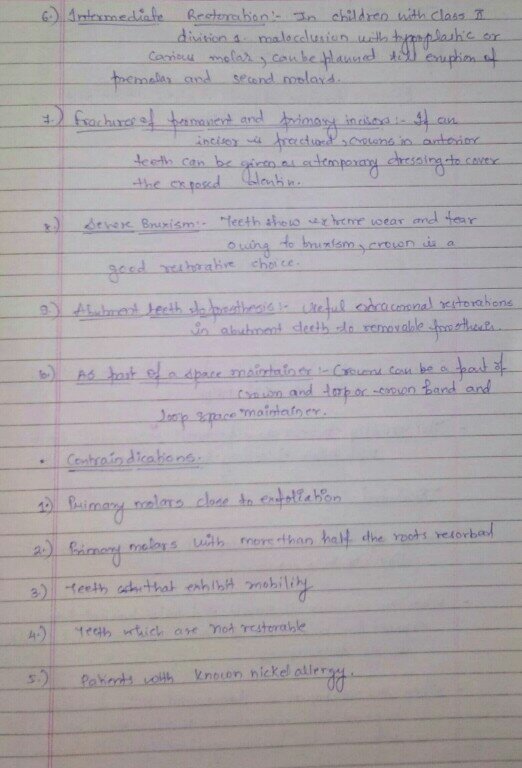 6.) Intermediate Restoration :- In children with class II
division 1 malocclusion with hypoplastic or
carious molar, can be planned till eruption of
premolar and second molars.
7.) Fractures of permanent and primary incisors :- If an
incisor is fractured, crowns in anterior
teeth can be given as a temporary dressing to cover
the exposed dentin.
8.) Severe Bruxism :- Teeth show extreme wear and tear
owing to bruxism, crown is a
good restorative choice.
9.) Abutment teeth to prosthesis :- Useful extracoronal restorations
in abutment teeth to removable prosthesis.
10) As part of a space maintainer :- Crowns can be a part of
crown and loop or crown band and
loop space maintainer.
• Contraindications.
1.) Primary molars close to exfoliation
2.) Primary molars with more than half the roots resorbed
3.) Teeth that exhibit mobility
4.) Teeth which are not restorable
5.) Patients with known nickel allergy.